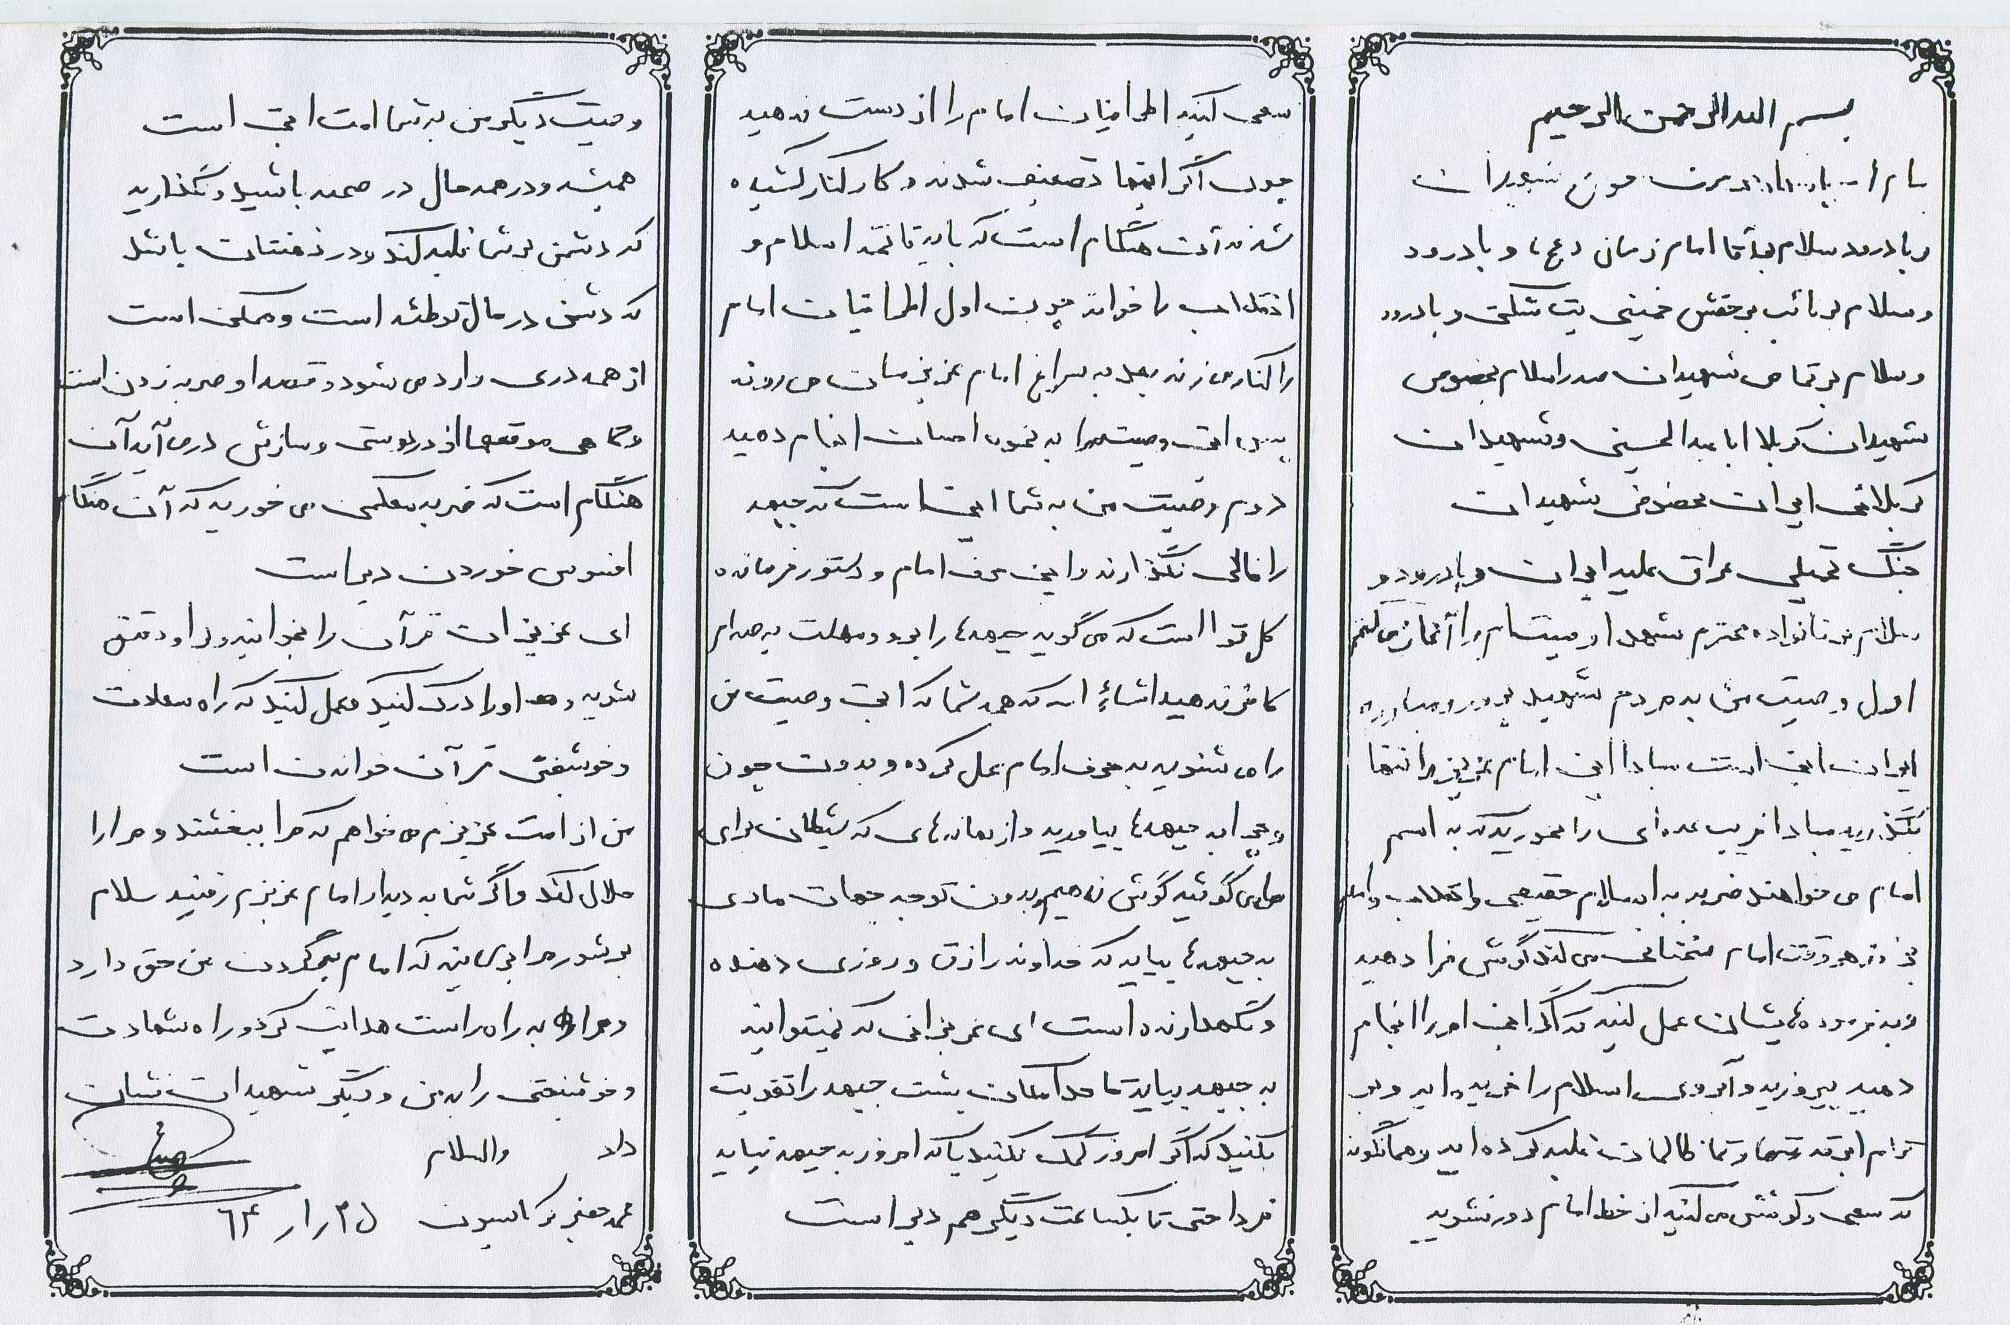 بسم الله الرحمن الرحیم
بنام پاسدار خون شهیدان
و با درود سلام بر آقا امام زمان (عج) و با درود
و سلام بر نائب بر حقش خمینی بت شکن و با درود
و سلام بر تمامی شهیدان صدر اسلام بخصوص
شهیدان کربلا ابا عبدالحسین و شهیدان
کربلائی ایران بخصوص شهیدان
جنگ تحمیلی عراق علیه ایران و با درود و
سلام بر خانواده محترم شهدا وصیتنام را آغاز می کنم
اول وصیت من به مردم شهید پرور و مبارزه
ایران این است مبادا این امام عزیز را تنها
بگذارید مبادا فریب عده ای را بخورید که به اسم
امام می خواهند ضربه به اسلام حقیقی و انقلاب و امام
بزنند هر وقت امام سخنانی می کند گوش فرا دهید
و به فرموده هایشان عمل کنید که اگر این امر را انجام
دهید پیروزید و آبروی اسلام را خریده اید و بر
تمام ابرقدرتها و تمام ظالمان غلبه کرده اید و همانگونه
که سعی و کوشش می کنید از خط امام دور نشوید
سعی کنید اطرافیان امام را از دست ندهید
چون اگر اینها تضعیف شدند و کنار کشیده
شدند آن هنگام است که باید فاتحه اسلام و
انقلاب را خواند چون اول اطرافیان امام
را کنار می زنند بعد به سراغ امام عزیزمان می روند
پس این وصیت مرا به نحو احسان انجام دهید
دوم وصیت من به شما این است که جبهه
را خالی نگذارند و این حرف امام و دستور فرمانده
کل قوا است که می گوید جبهه ها را برو و مهلت به صدام
کافر ندهید انشاءالله که همه شما که این وصیت من
را می شنوید به حرف امام عمل کرده و بدون چون
و چرا به جبهه ها بیاورید و از بهانه های که شیطان برای
ما می گوئید گوش ندهیم و بدون توجه جهات مادی
به جبهه ها بیاید که خداوند رازق و روزی دهنده
و نگهدارنده است ای عزیزانی که نمیتوانید
به جبهه بیاید تا حد امکان پشت جبهه را تقویت
بکنید که اگر امروز کمک نکنید یا که امروز به جبهه نیاید
فردا حتی تا یکساعت دیگر هم دیر است
وصیت دیگر من به شما امت این است
همیشه و در همه حال در صحنه باشید و نگذارید
که دشمن بر شما غلبه کند و در ذهنتان باشد
که دشمن در حال توطئه است و ممکن است
از همه دری وارد می شود و قصد او ضربه زدن است
و گاهی موقعها از در دوستی و سازش در می آید آن
هنگام است که ضربه محکمی می خورید که آن هنگام
افسوس خوردن دیر است
ای عزیزان قرآن را بخوانید و در او دقیق
شوید و او را درک کنید و عمل کنید که راه سعادت
و خوشبختی قرآن خواندن است
من از امت عزیزم می خواهم که مرا ببخشند و مرا را
حلال کند و اگر شما به دیدار امام عزیزم رفتید سلام
بر شور مرا برسانید که امام بگردن من حق دارد
و مرا به راه راست هدایت کرد و راه شهادت
و خوشبختی را به من و دیگر شهیدان نشان
داد والسلام
محمد جعفر برکاسیون ۲۵ ر۱ر ۶۴